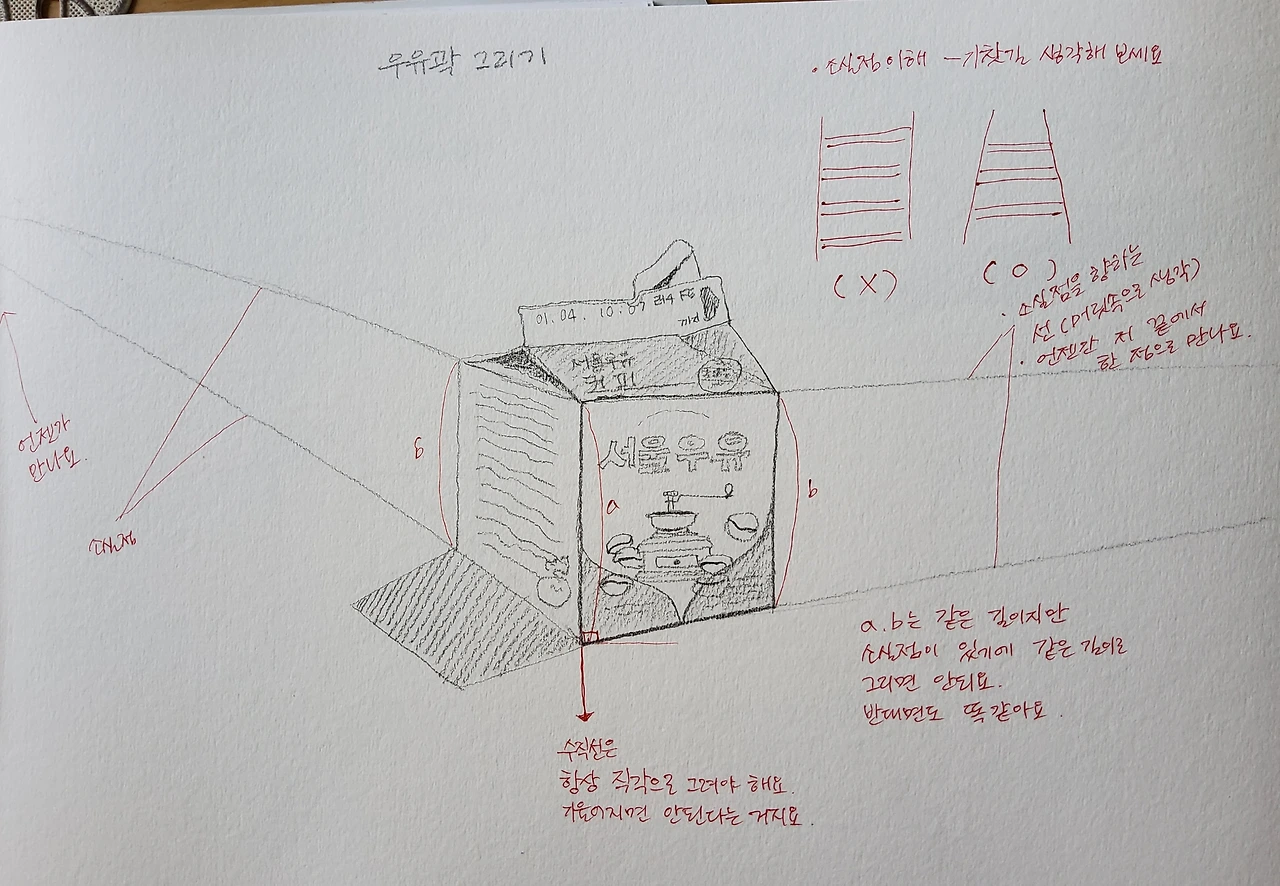 우유곽 그리기
• 소실점 이해 – 기찻길 생각해 보세요
(X)
(O)
• 소실점을 향하는
선 (머릿속으로 생각)
• 언젠간 저 끝에서
한 점으로 만나요.
언젠가
만나요.
소실점
01. 04. 10:07
까지
서울우유
커피
서울우유
6
a
b
a.b는 같은 길이지만
소실점이 있기에 같은 길이로
그리면 안되요.
반대면도 똑같아요.
수직선은
항상 직각으로 그려야 해요.
기울어지면 안된다는 거지요.